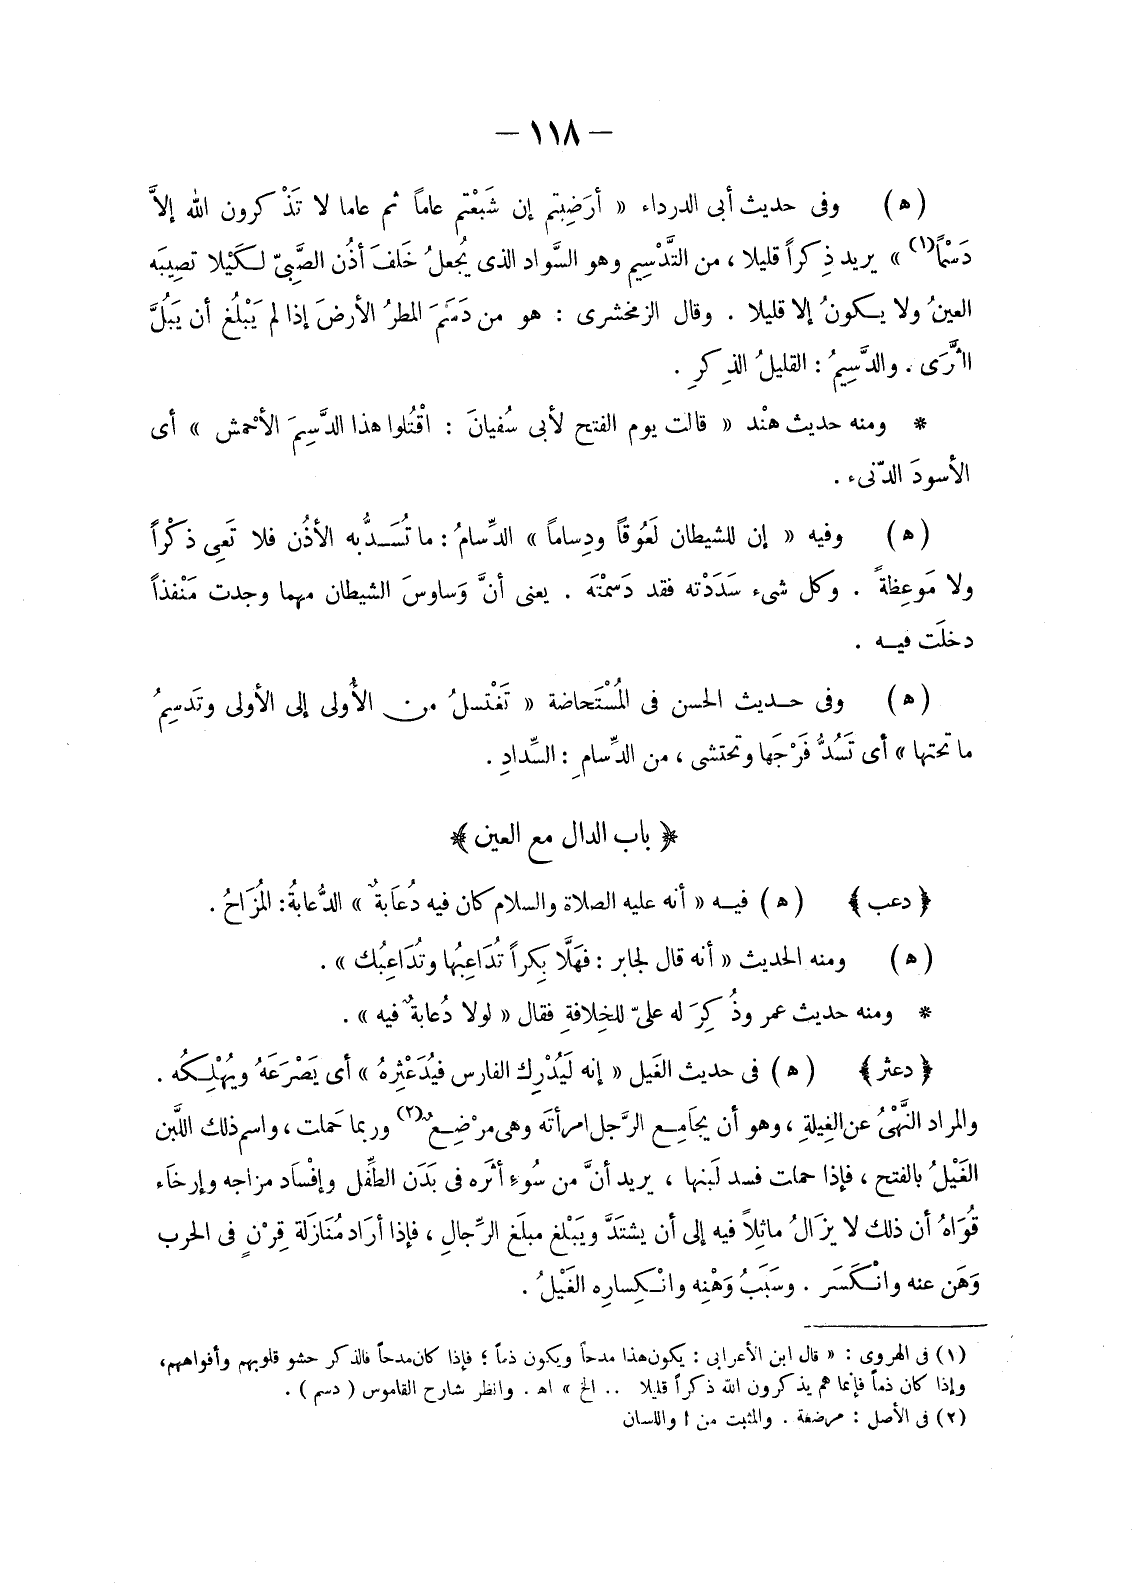 — ١١٨ —
(ه) وفى حديث أبى الدرداء « أرَضِيتم إن شَبعْتم عاماً ثم عاما لا تَذْكرون الله إلاَّ
دَسْماً(١) » يريد ذِكراً قليلا ، من التَّدْسِيم وهو السَّواد الذى يُجعلُ خَلفَ أذُن الصَّبِىّ لكَيْلا تصِيبَه
العينُ ولا يكونُ إلا قليلا . وقال الزمخشرى : هو من دَسَّمَ المطرُ الأرضَ إذا لم يَبْلُغ أن يَبُلَّ
الثَّرَى . والدَّسِيمُ : القليلُ الذِكرِ .
* ومنه حديث هنْد « قالت يوم الفتح لأبى سُفيانَ : اقْتُلوا هذا الدَّسِمَ الأحْمش » أى
الأسودَ الدّنىء .
(ه) وفيه « إن للشيطان لَعُوقاً ودِساماً » الدِّسامُ : ما تُسَدُّ به الأذُن فلا تَعِى ذكْراً
ولا مَوعِظةً . وكل شىء سَدَدْته فقد دَسمْتَه . يعنى أنَّ وَساوسَ الشيطان مهما وجدت مَنْفذاً
دخلَت فيه .
(ه) وفى حديث الحسن فى المُسْتَحاضة « تَغْتسلُ من الأُولى إلى الأولى وتَدسِمُ
ما تحتها » أى تَسُدُّ فَرْجَها وتحتشى ، من الدِّسامِ : السِّدادِ .
﴿ باب الدال مع العين ﴾
﴿ دعب ﴾ (ه) فيه « أنه عليه الصلاة والسلام كان فيه دُعاَبةٌ » الدُّعابةُ : المُزَاحُ .
(ه) ومنه الحديث « أنه قال لجابر : فهَلَّا بِكراً تُدَاعِبُها وتُدَاعِبُك » .
* ومنه حديث عمر وذُكِرَ له علىّ للخِلافةِ فقال « لولا دُعابةٌ فيه » .
﴿ دعثر ﴾ (ه) فى حديث الغَيل « إنه لَيُدْرِك الفارس فيُدَعْثِرهُ » أى يَصْرَعَهُ ويُهْلِكُه .
والمراد النَّهْىُ عن الغِيلةِ ، وهو أن يجامِع الرَّجل امرأتَه وهى مرْضِعٌ(٢) وربما حَملت ، واسم ذلك اللَّبن
الغَيْلُ بالفتح ، فإذا حملت فسد لَبنها ، يريد أنَّ من سُوءِ أثَره فى بَدَن الطِّفل وإفْسَاد مزاجه وإرخَاء
قُوَاهُ أن ذلك لا يزَالُ ماثِلاً فيه إلى أن يشتَدَّ ويَبْلغ مبلَغ الرِّجالِ ، فإذا أرَاد مُنَازَلة قِرْنٍ فى الحرب
وَهَن عنه وانْكَسَر . وسَبَبُ وَهْنِه وانْكِسارِه الغَيْلُ .
(١) فى الهروى : « قال ابن الأعرابى : يكون هذا مدحاً ويكون ذماً ؛ فإذا كان مدحاً فالذكر حشو قلوبهم وأفواههم،
وإذا كان ذماً فإنما هم يذكرون الله ذكراً قليلا .. الخ » اه . وانظر شارح القاموس ( دسم ) .
(٢) فى الأصل : مرضعة . والمثبت من ا واللسان